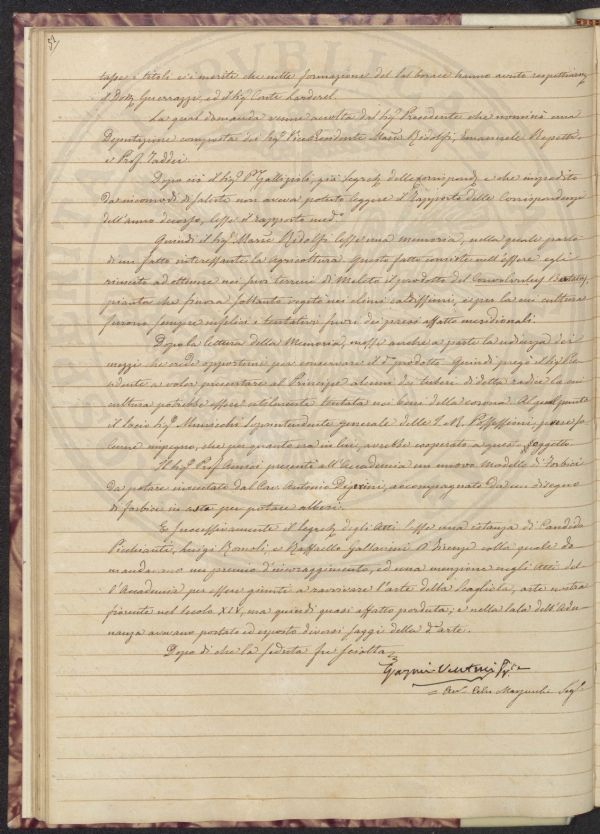 53
tasse e titoli ei meriti che nella formazione del hanno avuto respettivam.
il Dott. Guerrazzi, ed il Sig. Conte Larderel.
La qual domanda venne accolta dal Sig. Presidente che nominò una
Deputazione composta dei Sig. Vice Presidente March. Ridolfi, Emanuele Repetti
e Prof. Taddei.
Dopo ciò il Sig. Gallizioli, già Segret. delle Corrispond. e che impedito
da incomodi di salute non aveva potuto leggere il Rapporto delle Corrispondenze
dell'anno decorso, lesse il rapporto med.o
Quindi il Sig. March. Ridolfi lesse una memoria, nella quale parlò
di un fatto interessante la agricoltura. Questo fatto consiste nell'essere egli
riuscito ad ottenere nei suoi terreni di Meleto il prodotto del Convolvulus Batatas,
pianta che finora soltanto vegetò nei climi caldissimi, e per la cui cultura
furono sempre infelici i tentativi fuori dei paesi affatto meridionali.
Dopo la lettura della Memoria, messe anche a parte la udienza dei
mezzi che crede opportuni per conservare il d.o prodotto. Quindi pregò il Sig. Pre
sidente a voler presentare al Principe alcuni dei tuberi di detta radice la cui
cultura potrebbe essere utilmente tentata nei beni della corona. Al qual punto
il Socio Sig. Soprintendente generale delle I. e R. Possessioni, prese so
lenne impegno, che per quanto era in lui, avrebbe cooperato a questo soggetto.
Il Sig. Prof. Amici presentò all'Accademia un nuovo Modello di Forbici
da potare inventate dal Cav. Antonio accompagnato da un disegno
di forbice in asta per potare alberi.
E successivamente il Segret. degli Atti lesse una istanza di Candida
Luigi Romoli, e Raffaello Gallarini di Firenze colla quale do
mandarono un premio d'incoraggimento, ed una menzione negli Atti del
l'Accademia per essere giunti a ravvivare l'arte della Scagliola, arte nostra
fiorente nel Secolo XIV, ma quindi quasi affatto perduta; e nella Sala dell'Adu
nanza avevano portato ed esposto diversi saggi della d.a arte.
Dopo di che la seduta fu sciolta